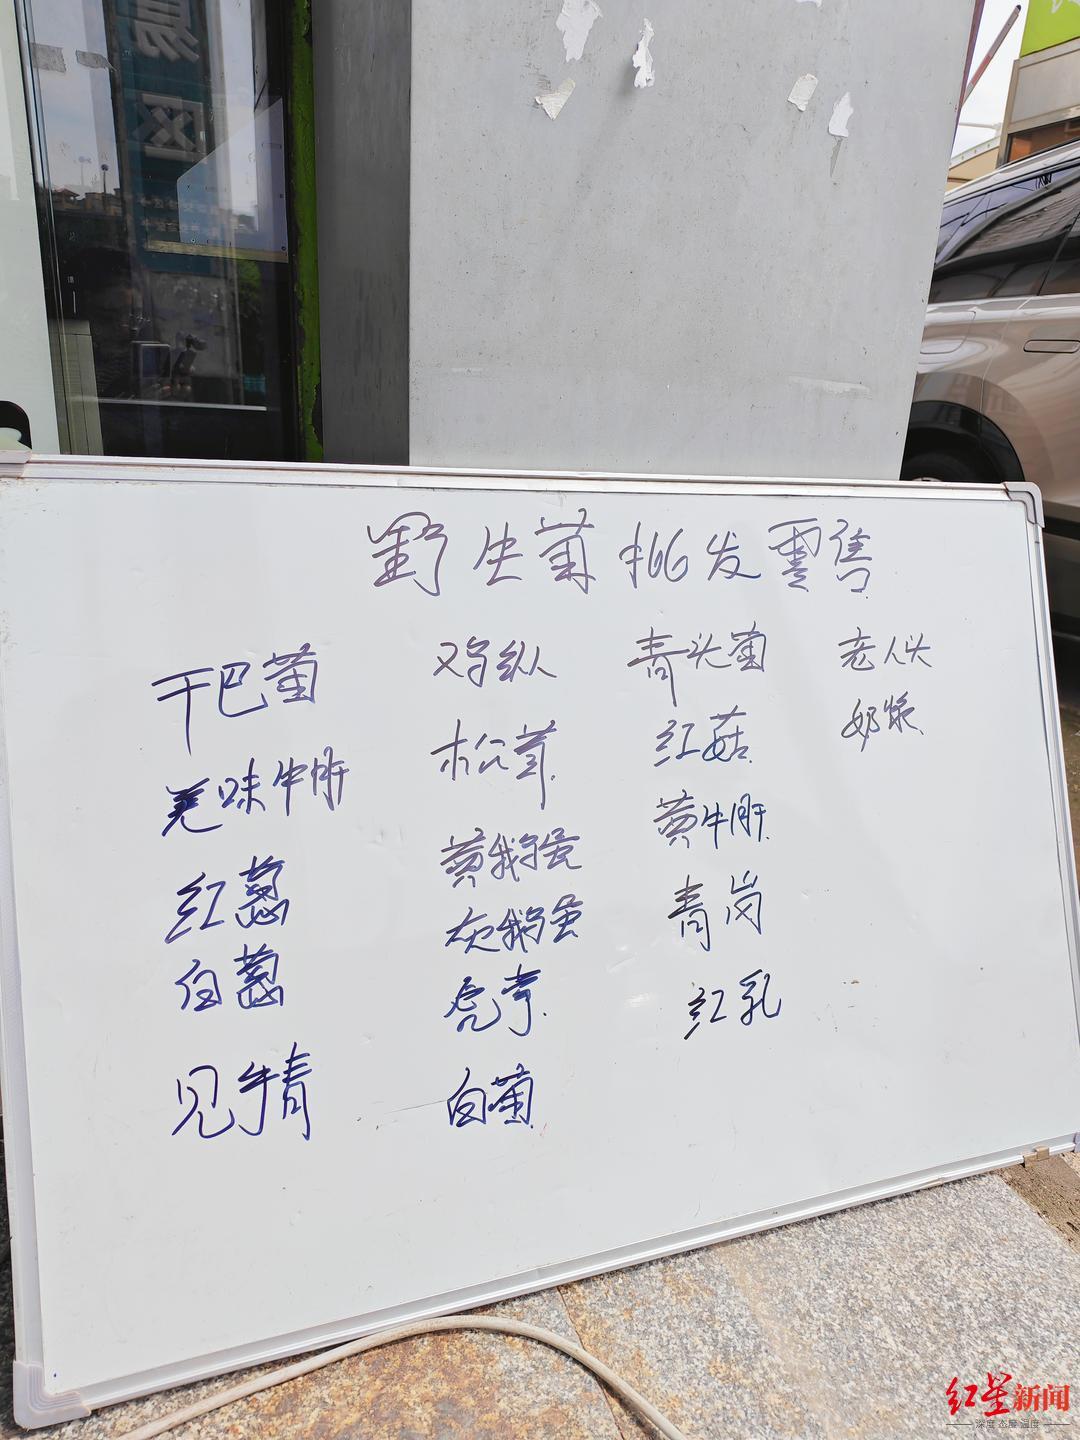 易
区
野生菌批发零售
干巴菌
美味牛肝
红葱
白葱
见手青
鸡枞
松茸
黄鹅蛋
灰鹅蛋
虎掌
白菌
青头菌
红菇
黄牛肝
青岗
红乳
老人头
奶浆
红星新闻
深度 态度 温度